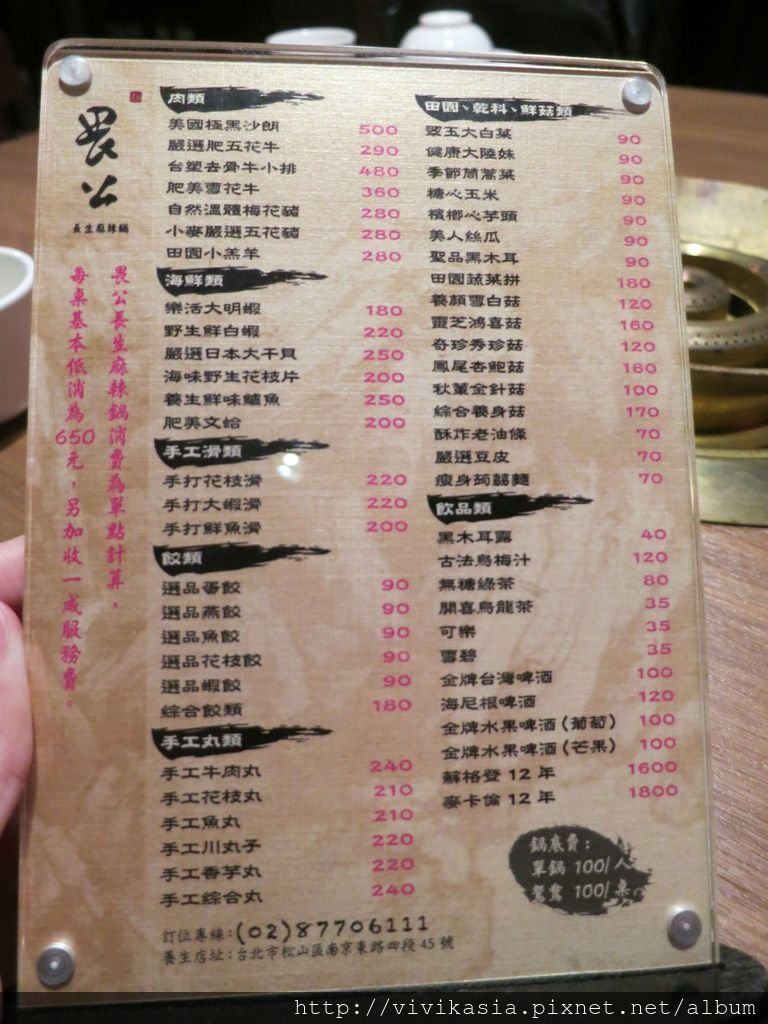 畏公
長生麻辣鍋
畏公長生麻辣鍋消費為單點計算，
每桌基本低消為650元，另加收一成服務費。
肉類
美國極黑沙朗 500
嚴選肥五花牛 290
台塑去骨牛小排 480
肥美雪花牛 360
自然溫體梅花豬 280
小麥嚴選五花豬 280
田園小羔羊 280
海鮮類
樂活大明蝦 180
野生鮮白蝦 220
嚴選日本大干貝 250
海味野生花枝片 200
養生鮮味鱸魚 250
肥美文蛤 200
手工滑類
手打花枝滑 220
手打大蝦滑 220
手打鮮魚滑 200
餃類
選品蛋餃 90
選品燕餃 90
選品魚餃 90
選品花枝餃 90
選品蝦餃 90
綜合餃類 180
手工丸類
手工牛肉丸 240
手工花枝丸 210
手工魚丸 210
手工川丸子 220
手工香芋丸 220
手工綜合丸 240
田園、乾料、鮮菇類
翠玉大白菜 90
健康大陸妹 90
季節茼蒿菜 90
糖心玉米 90
檳榔心芋頭 90
美人絲瓜 90
聖品黑木耳 90
田園蔬菜拼 180
養顏雪白菇 120
靈芝鴻喜菇 160
奇珍秀珍菇 120
鳳尾杏鮑菇 160
秋薑金針菇 100
綜合養身菇 170
酥炸老油條 70
嚴選豆皮 70
瘦身蒟蒻麵 70
飲品類
黑木耳露 40
古法烏梅汁 120
無糖綠茶 80
開喜烏龍茶 35
可樂 35
雪碧 35
金牌台灣啤酒 100
海尼根啤酒 120
金牌水果啤酒（葡萄） 100
金牌水果啤酒（芒果） 100
蘇格登 12 年 1600
麥卡倫 12 年 1800
鍋底費：
單鍋 100/人
鴛鴦 100/桌
訂位專線：(02)87706111
養生店址：台北市松山區南京東路四段 45 號
http://vivikasia.pixnet.net/album